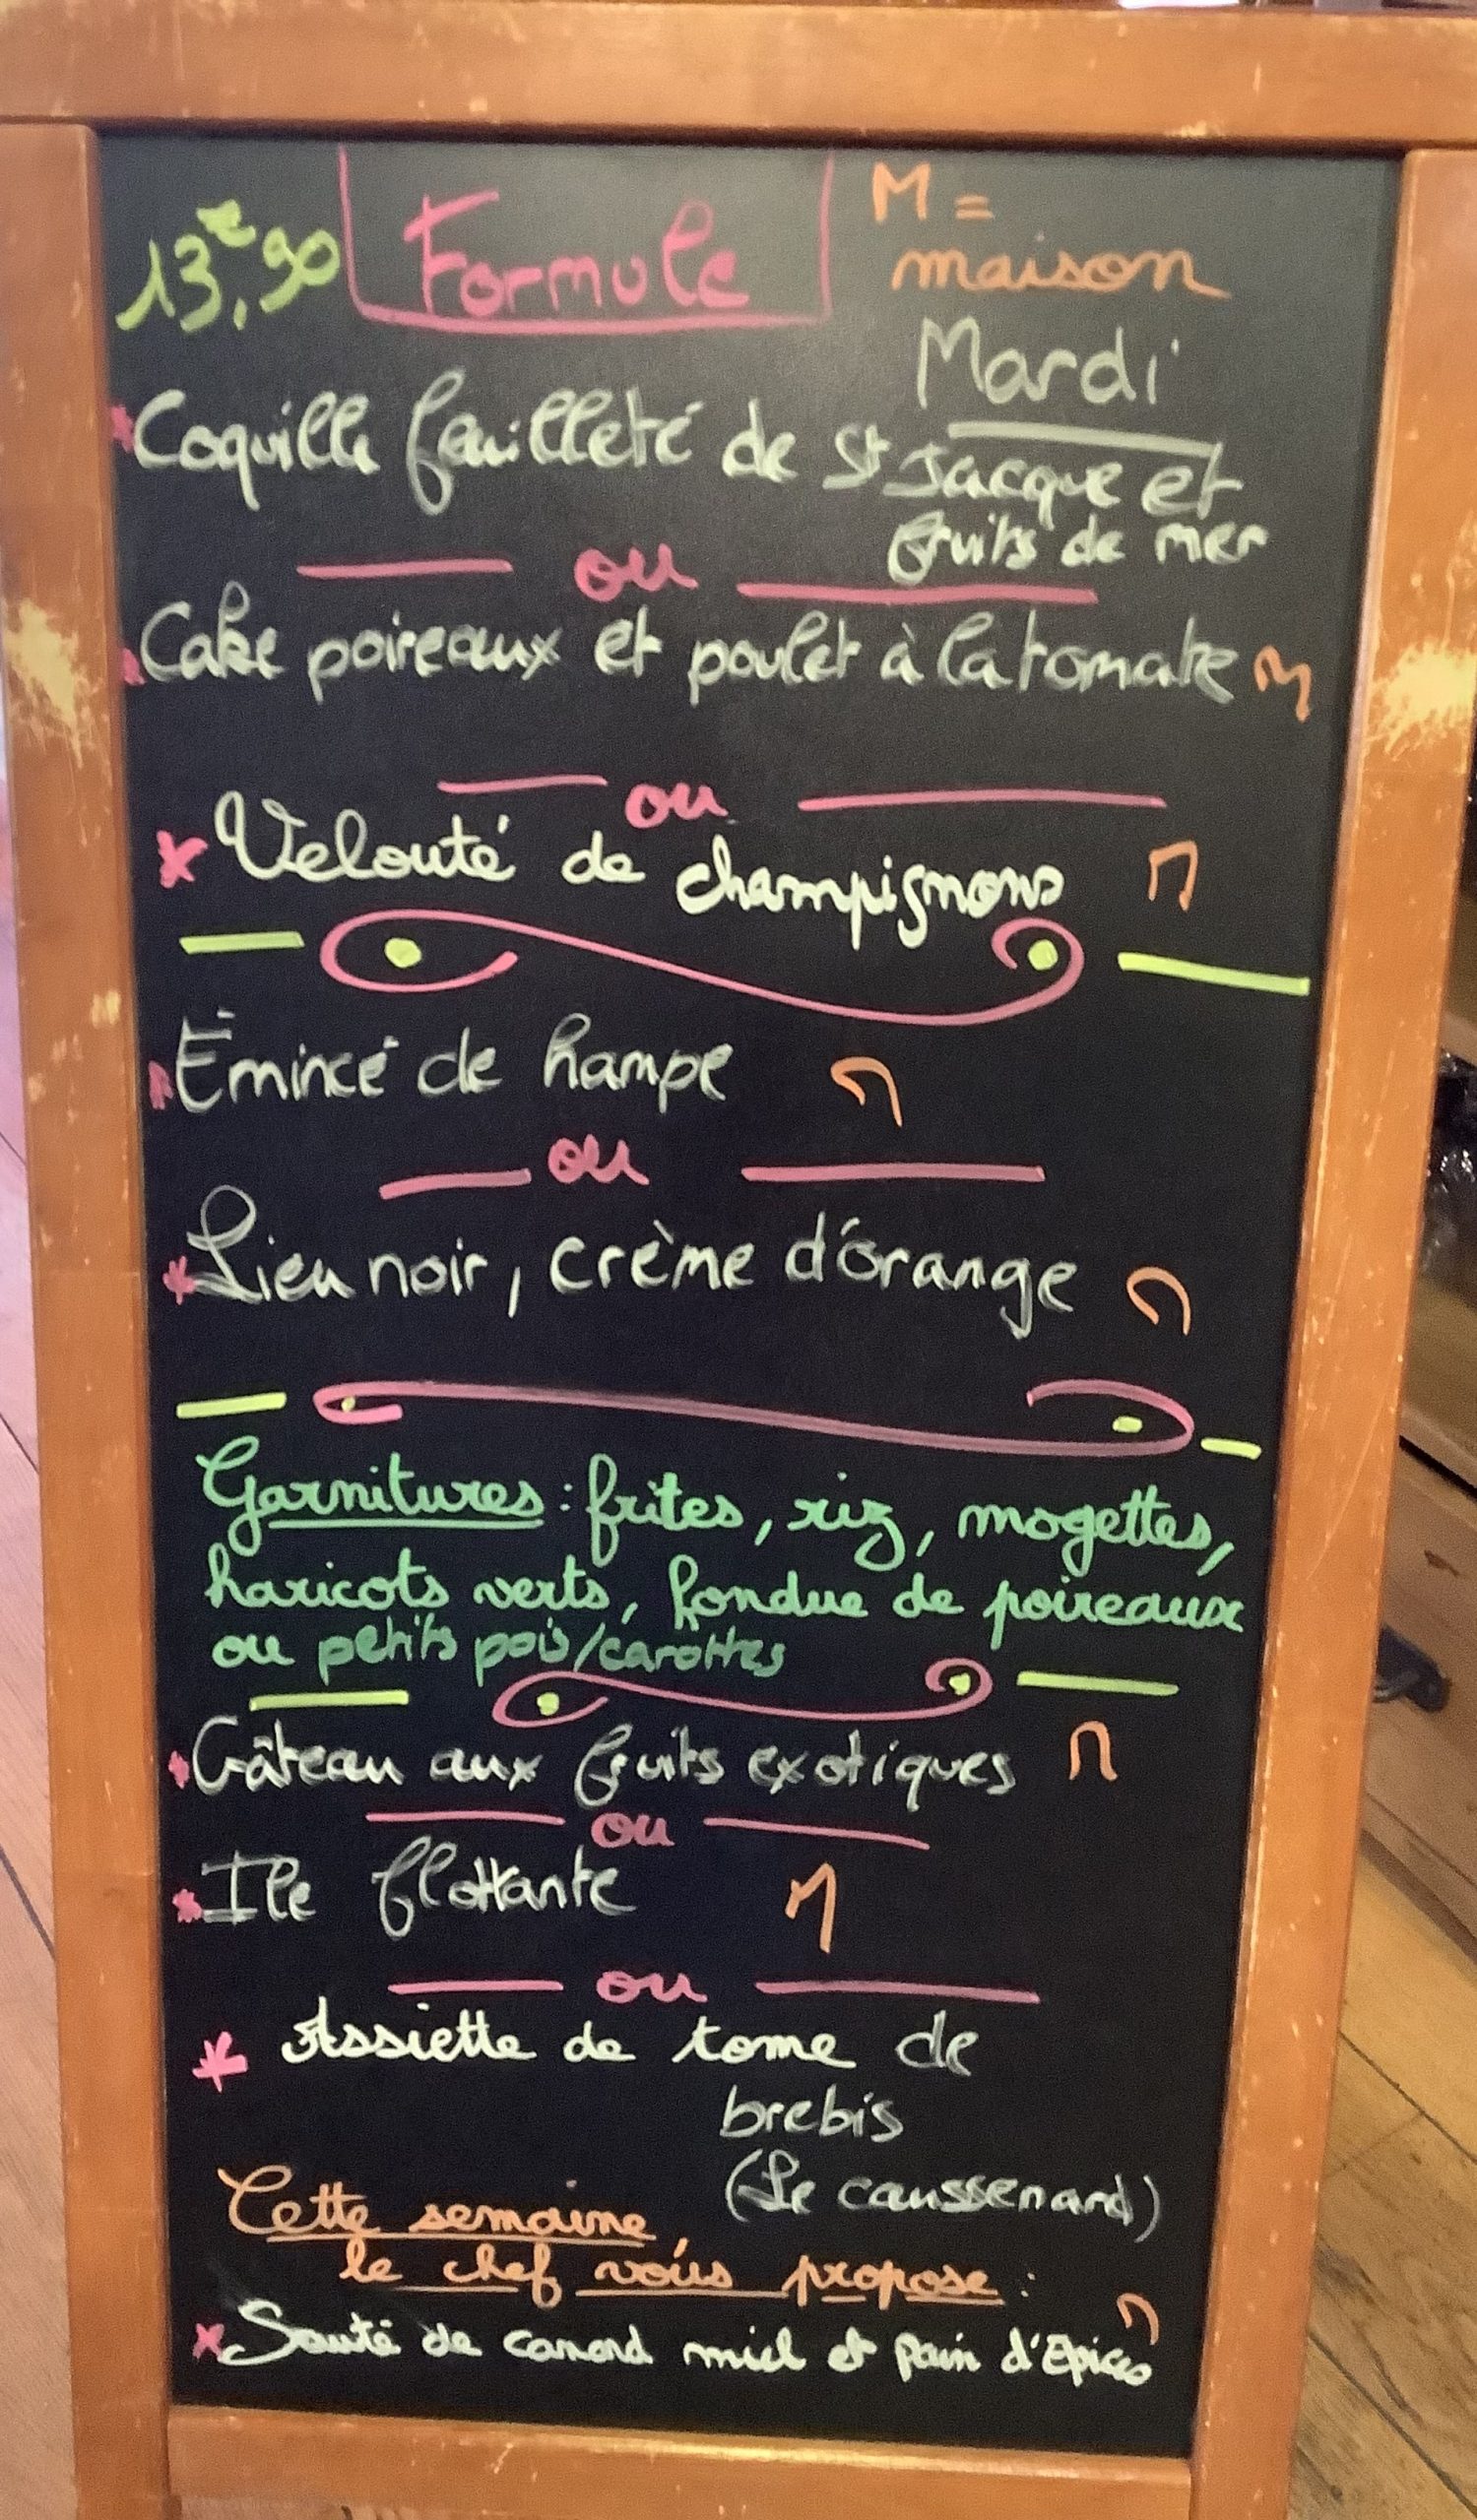 13,€90 Formule M =
maison
Mardi
*Coquille feuilleté de St Jacque et
fruits de mer
ou
*Cake poireaux et poulet à la tomate M
ou
*Velouté de champignons M
*Émincé de hampe M
ou
*Lieu noir, crème d'orange M
Garnitures : frites, riz, mogettes,
haricots verts, fondue de poireaux
ou petits pois/carottes
*Gâteau aux fruits exotiques M
ou
*Ile flottante M
ou
* Assiette de tome de
brebis
(Le caussenard)
Cette semaine,
le chef vous propose :
*Sauté de canard miel et pain d'Epices M